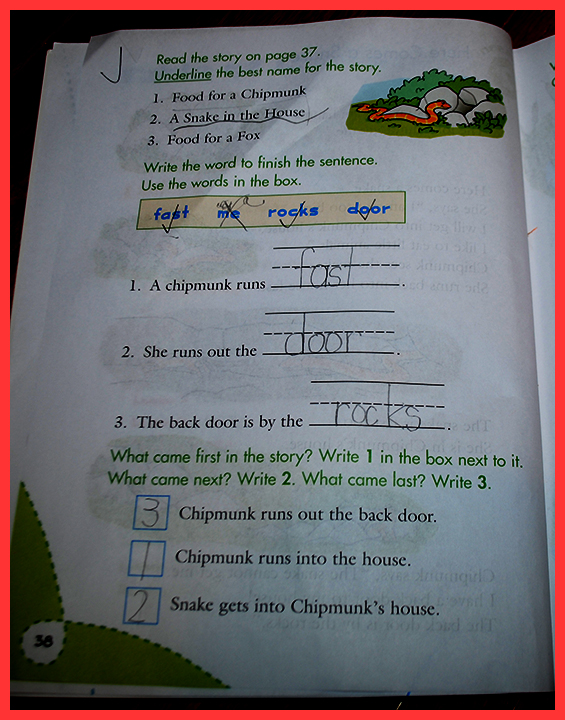 Read the story on page 37.
Underline the best name for the story.
1. Food for a Chipmunk
2. A Snake in the House
3. Food for a Fox
Write the word to finish the sentence.
Use the words in the box.
fast me rocks door
1. A chipmunk runs fast.
2. She runs out the door.
3. The back door is by the rocks.
What came first in the story? Write 1 in the box next to it.
What came next? Write 2. What came last? Write 3.
3 Chipmunk runs out the back door.
1 Chipmunk runs into the house.
2 Snake gets into Chipmunk's house.
38